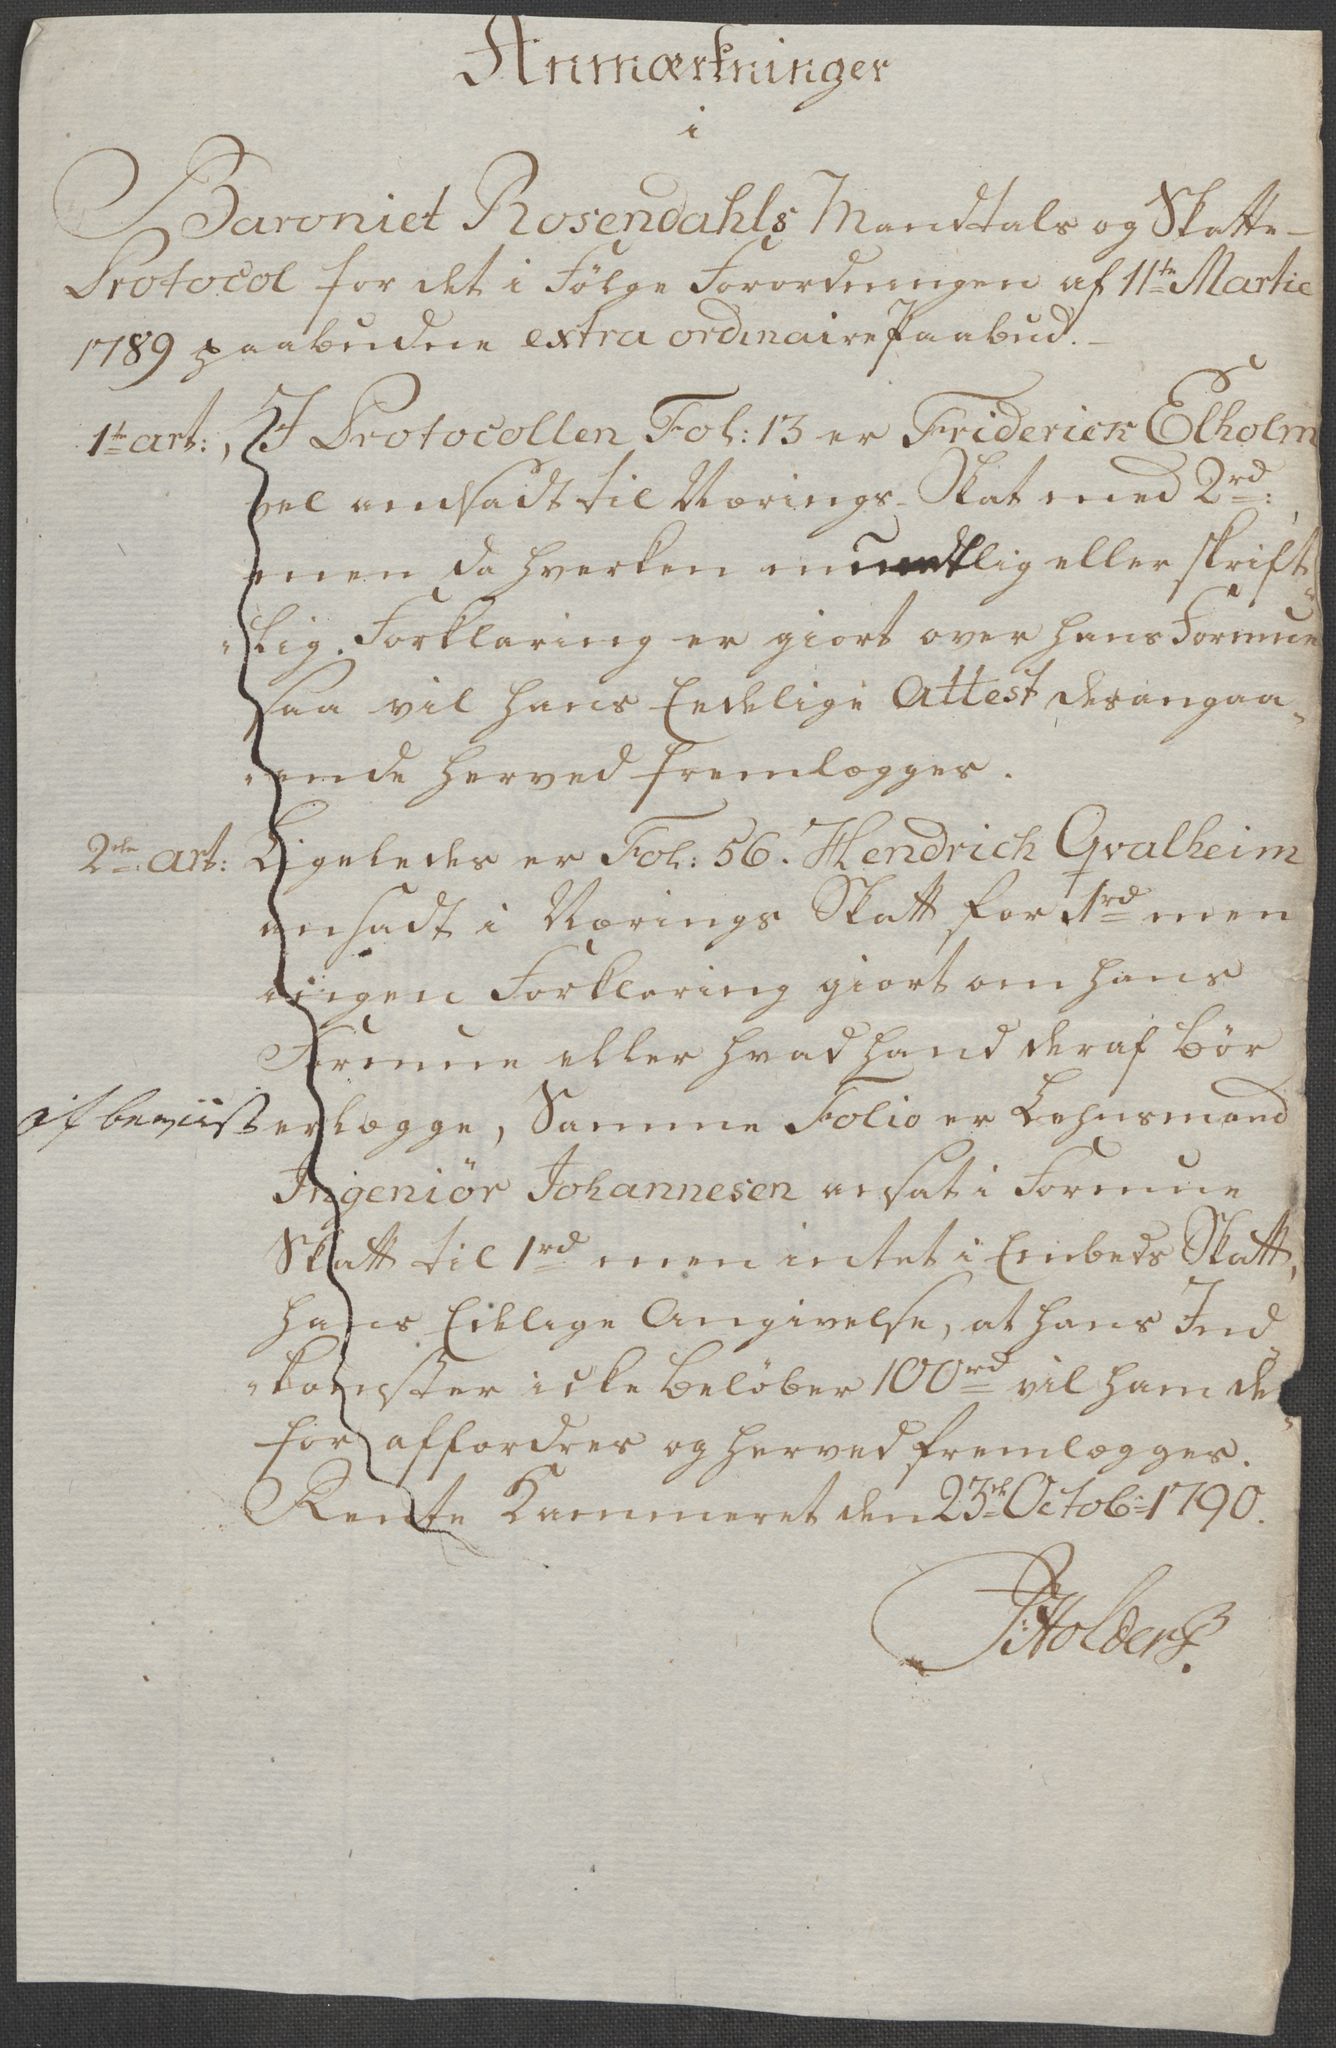 Anmærkninger
i
Baroniet Rosendahls Mandtals og Skatte-
Protocol for det i Følge Forordningen af 11te Martie
1789 paabudne extra ordinaire Paabud.-
1te art:, I Protocollen Fol: 13 er Friderick Elholm
vel ansadt til Nærings-Skat med 2rd:,
men da hverken mundtlig eller skrift-
-lig Forklaring er giort over hans Formue
saa vil hans Eedelige Attest desangaa-
-ende herved fremlægges.
2den art: Ligeledes er Fol: 56. Hendrich Qvalheim
ansadt i Nærings Skatt for 1rd men
ingen Forklaring giort om hans
Formue eller hvad hand deraf bør
erlægge, Samme Folio er Lehnsmand
Ingeniør Johannesen ansat i Formue
Skatt til 1rd men intet i Embeds Skatt,
hans Eedlige Angivelse, at hans Ind-
-komster icke beløber 100rd vil ham de-
for affordres og herved fremlægges.
Rente Kammeret den 23de Octobr 1790.